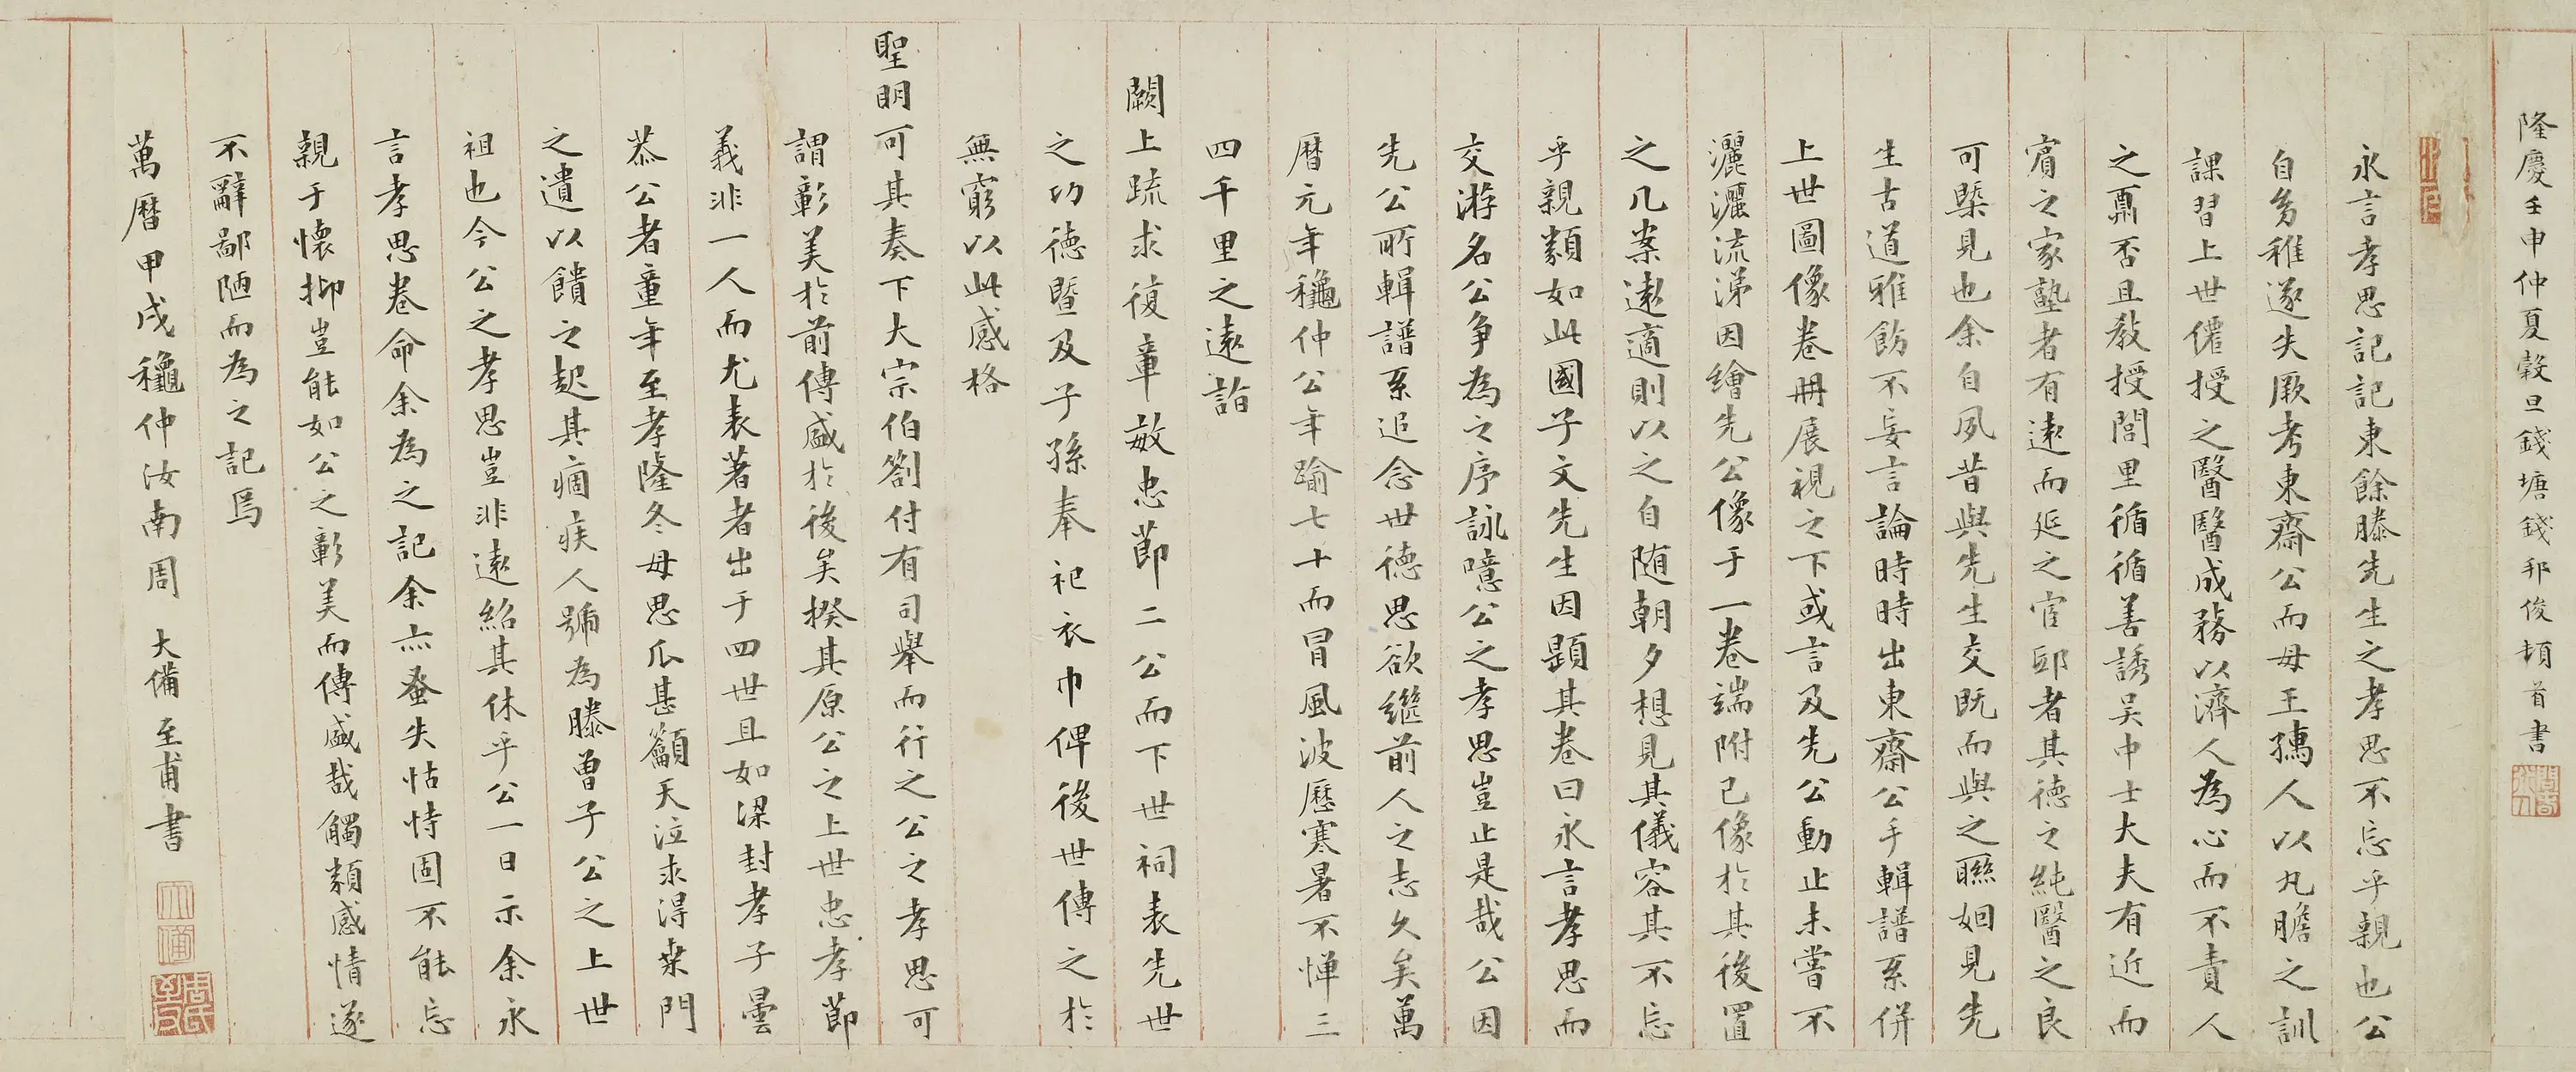 隆慶壬申仲夏穀旦錢塘錢邦俊頓首書
永言孝思記記東餘滕先生之孝思不忘乎親也公
自㓜稚遂失厥考東齋公而母王孺人以丸膽之訓
課習上世僊授之醫醫成務以濟人為心而不責人
之鼏否且教授閭里循循善誘吴中士大夫有近而
賓之家塾者有遠而延之官邸者其德之純醫之良
可槩見也余自夙昔與先生交既而與之聯姻見先
生古道雅飭不妄言論時時出東齋公手輯譜系併
上世圖像卷冊展視之下或言及先公動止未嘗不
灑灑流涕因繪先公像于一卷端附己像於其後置
之几案遠適則以之自随朝夕想見其儀容其不忘
乎親類如此國子文先生因題其卷曰永言孝思而
交游名公争為之序詠噫公之孝思豈止是哉公因
先公所輯譜系追念世德思欲繼前人之志久矣萬
曆元年龝仲公年踰七十而冒風波歷寒暑不憚三
四千里之遠詣
闕上疏求復章敏忠節二公而下世祠表先世
之功德暨及子孫奉祀衣巾俾後世傳之於
無窮以此感格
聖明可其奏下大宗伯劄付有司舉而行之公之孝思可
謂彰美於前傳盛於後矣揆其原公之上世忠孝節
義非一人而尤表著者出于四世且如梁封孝子曇
恭公者童年至孝隆冬母思瓜甚籲天泣求得桒門
之遺以饋之起其痼疾人號為滕曾子公之上世
祖也今公之孝思豈非遠紹其休乎公一日示余永
言孝思卷命余為之記余亦蚤失怙恃固不能忘
親于懷抑豈能如公之彰美而傳盛哉觸類感情遂
不辭鄙陋而為之記焉
萬曆甲戌龝仲汝南周 大備至甫書
大備